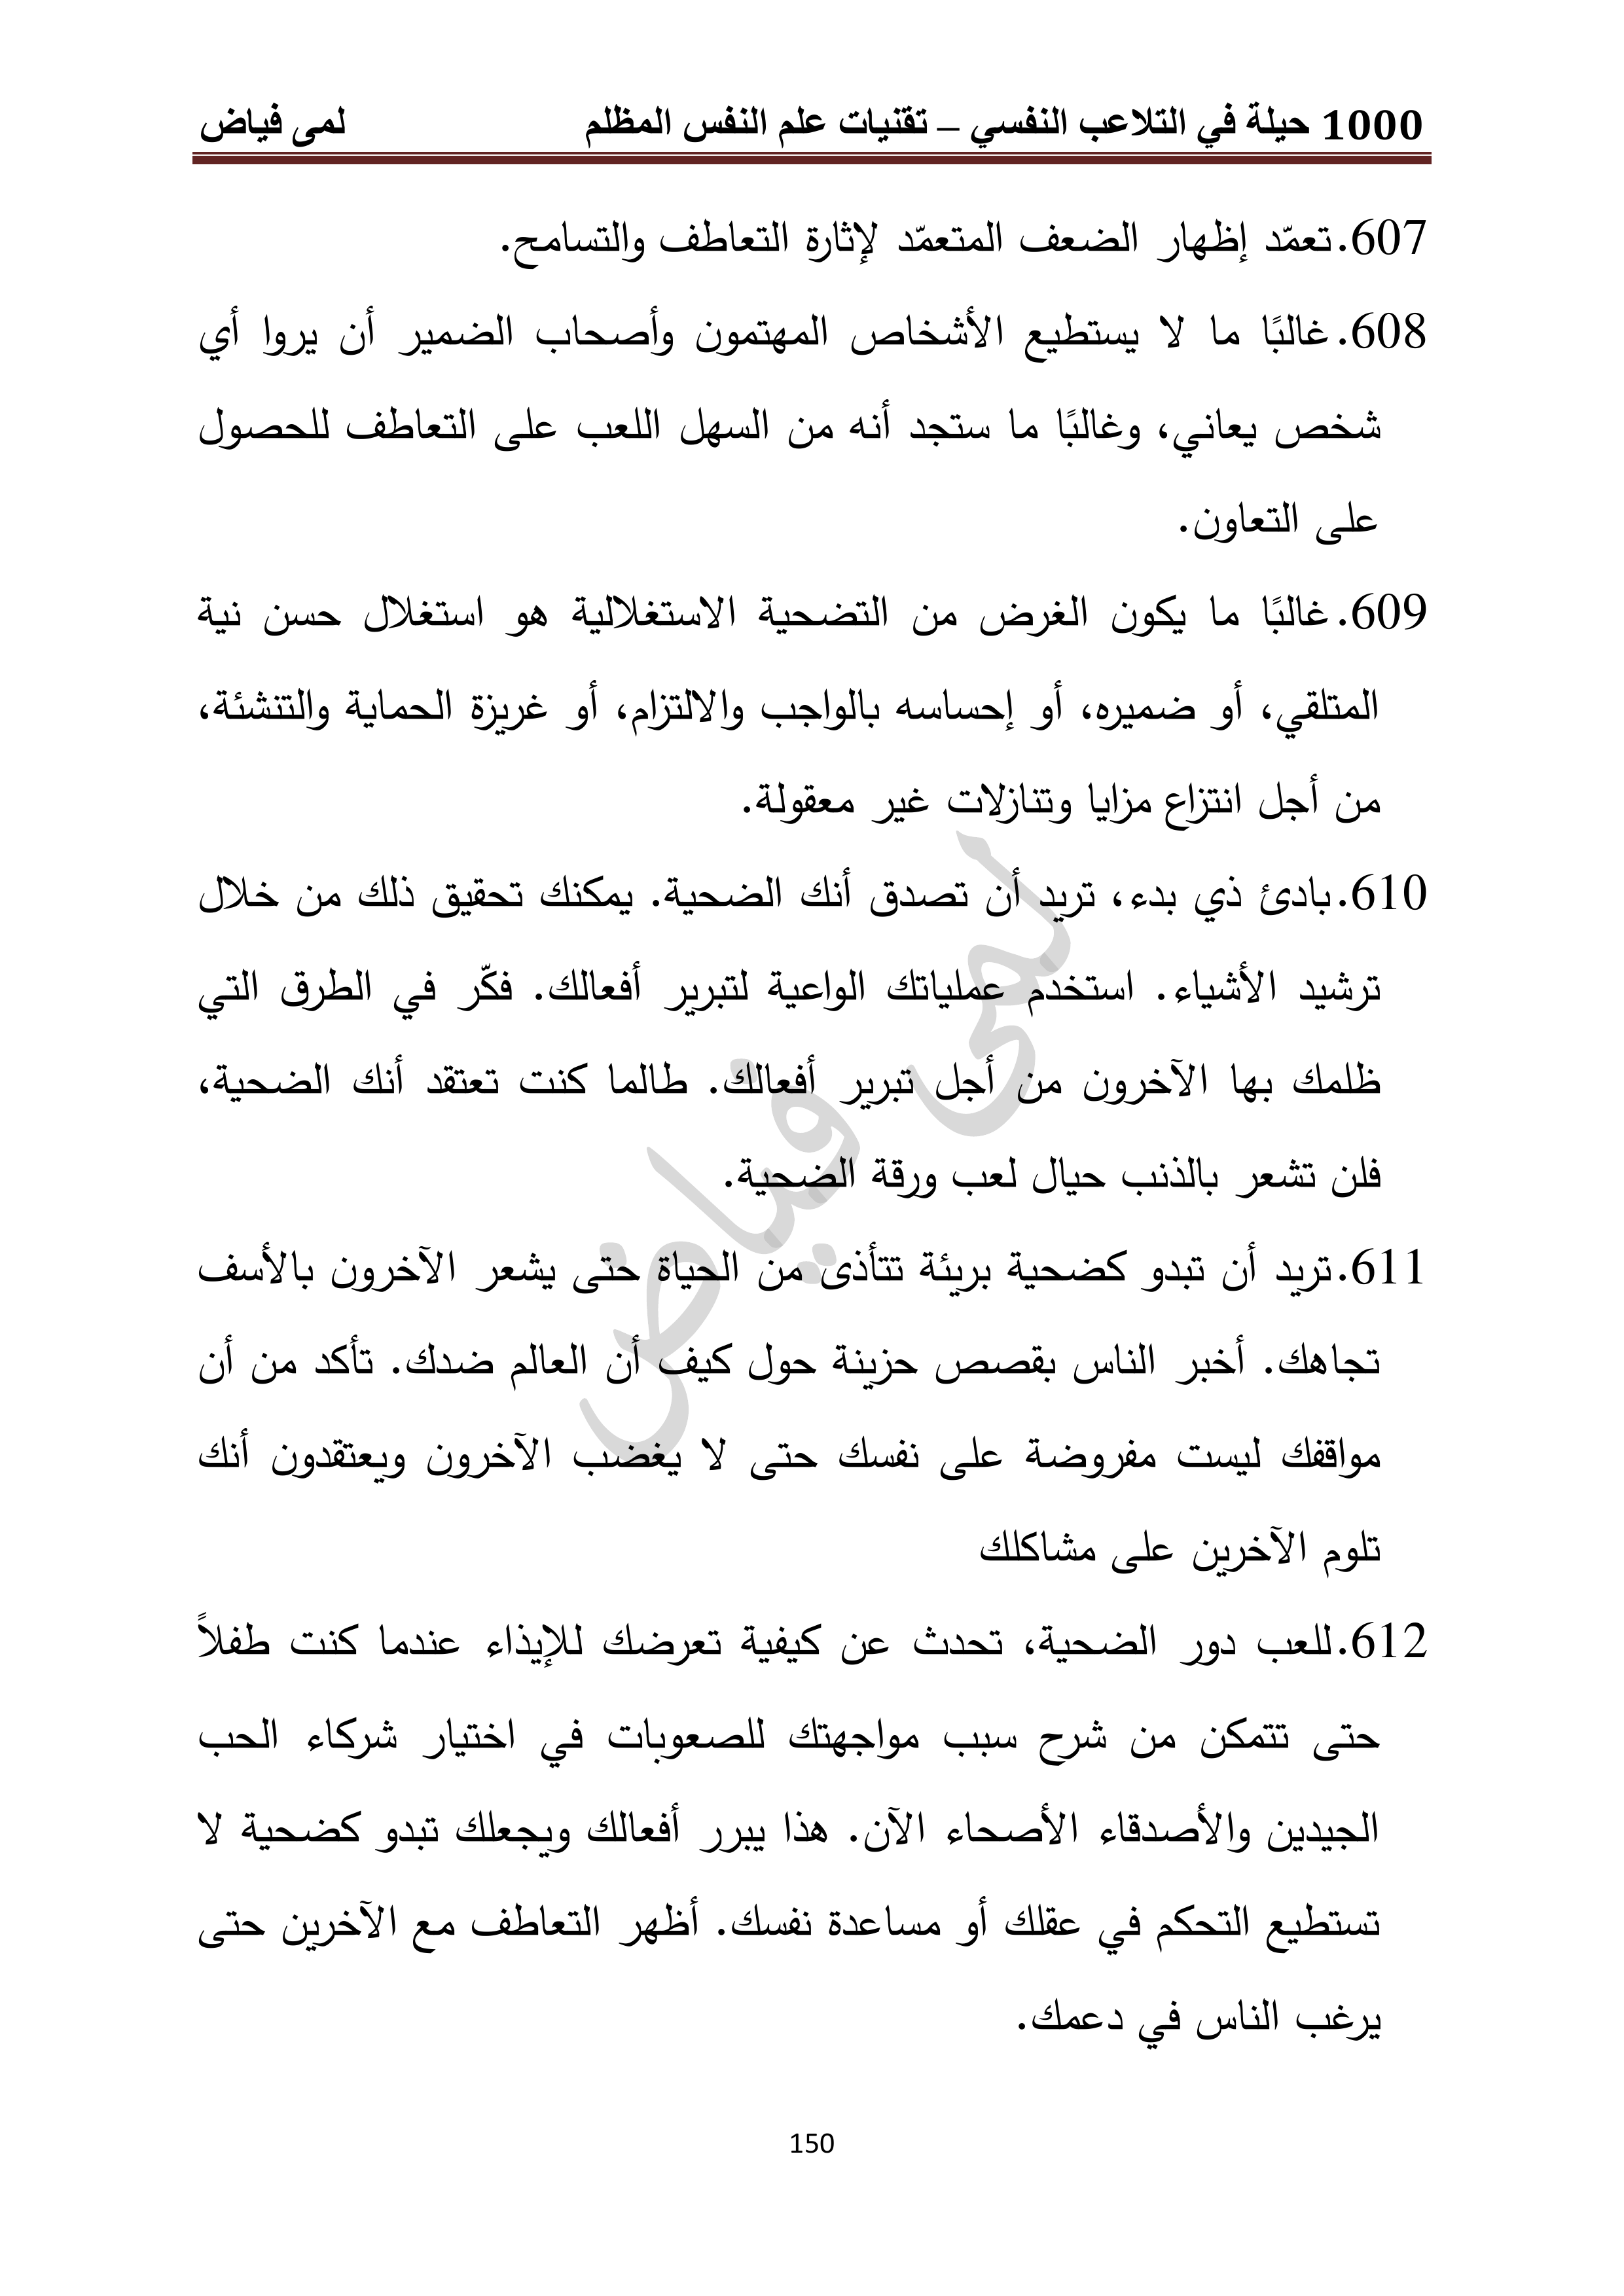 1000 حيلة في التلاعب النفسي – تقنيات علم النفس المظلم لمى فياض
607. تعمّد إظهار الضعف المتعمّد لإثارة التعاطف والتسامح.
608. غالبًا ما لا يستطيع الأشخاص المهتمون وأصحاب الضمير أن يروا أي
شخص يعاني، وغالبًا ما ستجد أنه من السهل اللعب على التعاطف للحصول
على التعاون.
609. غالبًا ما يكون الغرض من التضحية الاستغلالية هو استغلال حسن نية
المتلقي، أو ضميره، أو إحساسه بالواجب والالتزام، أو غريزة الحماية والتنشئة،
من أجل انتزاع مزايا وتنازلات غير معقولة.
610. بادئ ذي بدء، تريد أن تصدق أنك الضحية. يمكنك تحقيق ذلك من خلال
ترشيد الأشياء. استخدم عملياتك الواعية لتبرير أفعالك. فكّر في الطرق التي
ظلمك بها الآخرون من أجل تبرير أفعالك. طالما كنت تعتقد أنك الضحية،
فلن تشعر بالذنب حيال لعب ورقة الضحية.
611. تريد أن تبدو كضحية بريئة تتأذى من الحياة حتى يشعر الآخرون بالأسف
تجاهك. أخبر الناس بقصص حزينة حول كيف أن العالم ضدك. تأكد من أن
مواقفك ليست مفروضة على نفسك حتى لا يغضب الآخرون ويعتقدون أنك
تلوم الآخرين على مشاكلك
612. للعب دور الضحية، تحدث عن كيفية تعرضك للإيذاء عندما كنت طفلاً
حتى تتمكن من شرح سبب مواجهتك للصعوبات في اختيار شركاء الحب
الجيدين والأصدقاء الأصحاء الآن. هذا يبرر أفعالك ويجعلك تبدو كضحية لا
تستطيع التحكم في عقلك أو مساعدة نفسك. أظهر التعاطف مع الآخرين حتى
يرغب الناس في دعمك.
لمى فياض
150